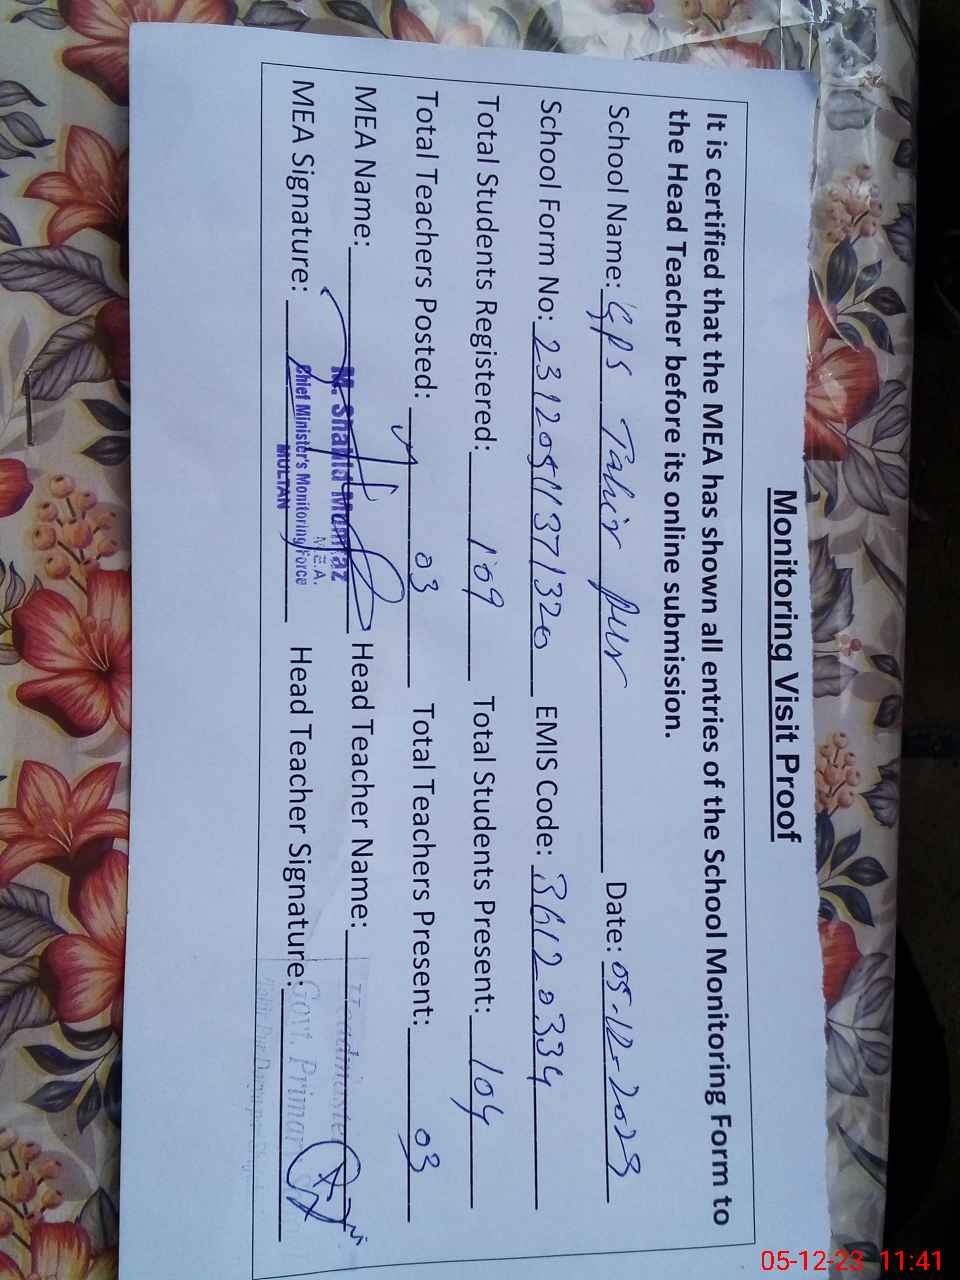 Monitoring Visit Proof
It is certified that the MEA has shown all entries of the School Monitoring Form to
the Head Teacher before its online submission.
School Name: GPS Tahir pur Date: 05-12-2023
School Form No: 23120511371320 EMIS Code: 36120334
Total Students Registered: 109 Total Students Present: 104
Total Teachers Posted: 03 Total Teachers Present: 03
MEA Name: M. Shahid Mumtaz Head Teacher Name: Headmaster
M.E.A.
MEA Signature: Chief Minister's Monitoring Force Head Teacher Signature: Govt. Primary
MULTAN
05-12-23 11:41